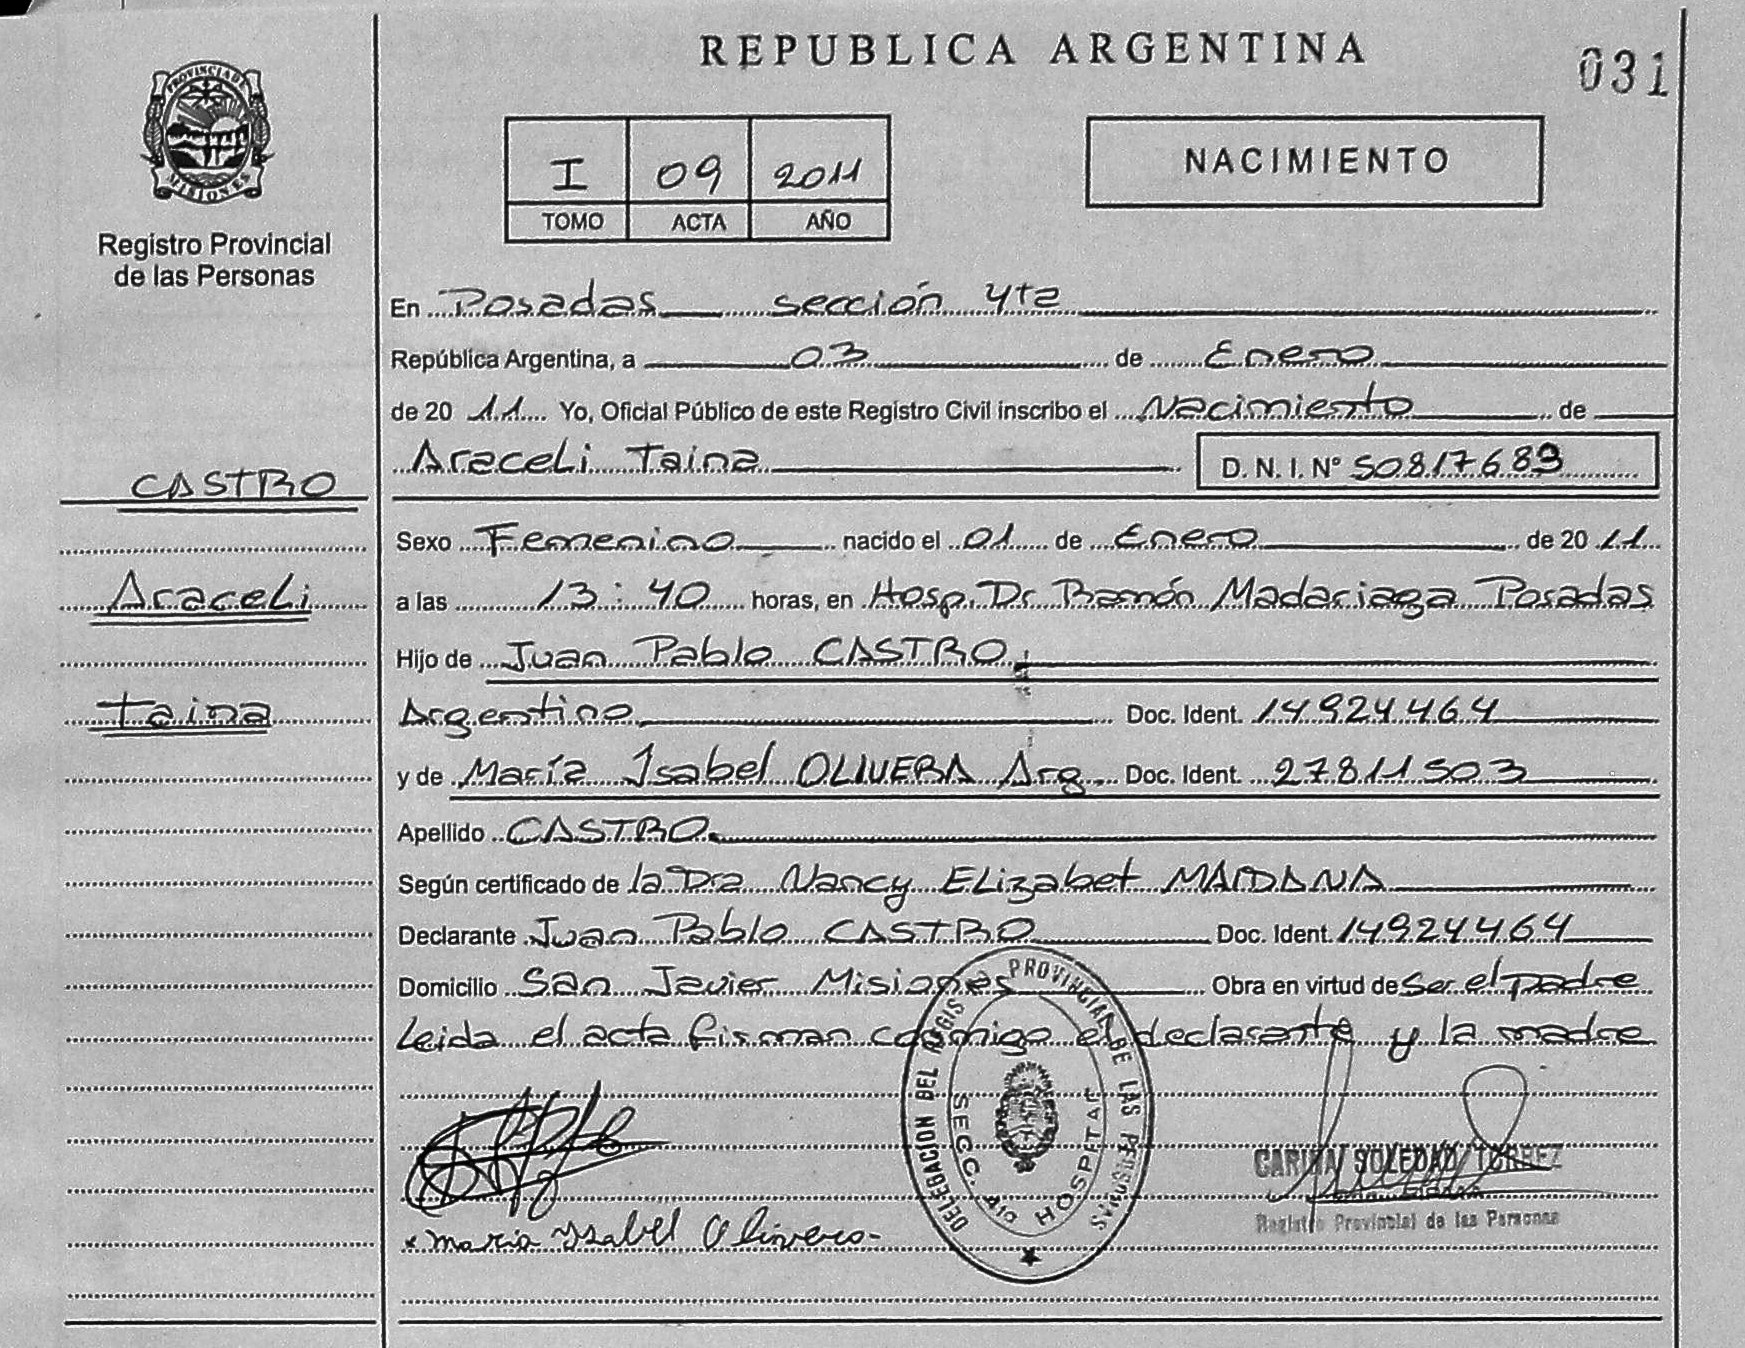 REPUBLICA ARGENTINA
031
PROVINCIA DE
MISIONES
Registro Provincial
de las Personas
I 09 2011
TOMO ACTA AÑO
NACIMIENTO
En Posadas sección 4ta
República Argentina, a 03 de Enero
de 2011 Yo, Oficial Público de este Registro Civil inscribo el Nacimiento de
Araceli Taina D. N. I. Nº 50817689
CASTRO
Araceli
Taina
Sexo Femenino nacido el 01 de Enero de 2011
a las 13:40 horas, en Hosp. Dr Ramón Madariaga Posadas
Hijo de Juan Pablo CASTRO
Argentino Doc. Ident. 14924464
y de María Isabel OLIVERA Arg. Doc. Ident. 27811503
Apellido CASTRO
Según certificado de la Dra Nancy Elizabet MAIDANA
Declarante Juan Pablo CASTRO Doc. Ident. 14924464
Domicilio San Javier Misiones Obra en virtud de Ser el padre
Leida el acta firman conmigo el declarante y la madre
DELEGACION DEL REGIS PROVINCIAL DE LAS PERSONAS
SECC. 4to HOSPITAL
CARINA SOLEDAD TORREZ
Registro Provincial de las Personas
x maria ysabel Olivera-